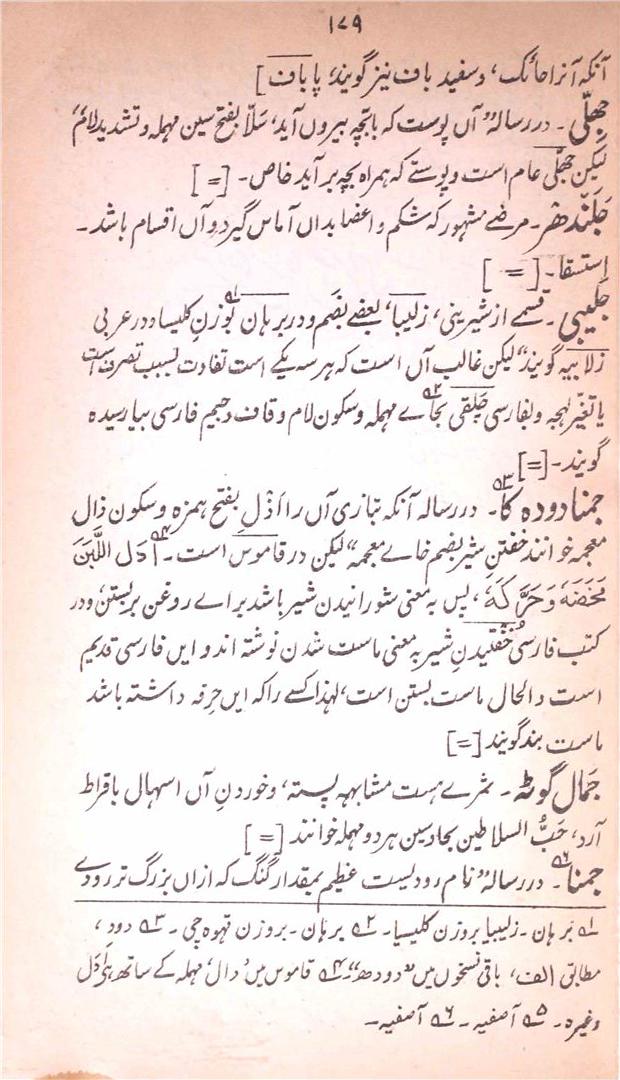 ۱۷۹
آنکہ آنرا حائک، و سفید باف نیز گویند، پا باف]
جھلّی۔ در رسالہ” آں پوست کہ با بچّہ بیروں آید، سَلاّ بفتح سین مہملہ و تشدید لام“
لیکن جھلّی عام است و پوستے کہ ہمراہ بچہ بر آید خاص۔ [=]
جَلَندھر۔ مرضے مشہور کہ شکم و اعضا بداں آماس گیرد و آں اقسام باشد۔
اِستسقا۔ [=]
جَلیبی۔ قسمے از شیرینی، زلیبا، بعضے بضم و در برہان ۱؎ بوزنِ کلیسا و در عربی
زلابیہ گویند“ لیکن غالب آں است کہ ہر سہ یکے است تفاوت بسبب تصرف است
یا تغیّر لہجہ و بفارسی چلقی ۲؎ بحاے مہملہ و سکون لام و قاف و جیم فارسی بیا رسیدہ
گویند۔ [=]
جمنا دودہ کا ۳؎۔ در رسالہ آنکہ بتازی آں را اذل بفتح ہمزہ و سکون ذال
معجمہ خوانند خفتنِ شیر بضم خاے معجمہ“ لیکن در قاموس است۔ ۴؎ اَدَل اللَّبَنَ
مَخَضَہٗ وَ حَرَّکَہٗ، پس بہ معنی شورانیدن شیر باشد براے روغن بر بستن، و در
کتب فارسی خُفتیدنِ شیر بہ معنی ماست شدن نوشتہ اند و ایں فارسی قدیم
است و الحال ماست بستن است، لہٰذا کسے را کہ ایں حِرفہ داشتہ باشد
ماست بند گویند [=]
جَمَال گوٹہ۔ ثمرے ہست مشابہہ پستہ، و خوردنِ آں اسہال بافراط
آرد، حَبُّ السلاطین بحا و سین ہر دو مہملہ خوانند [=]
جمنا ۶؎۔ در رسالہ” نام رودیست عظیم بمقدار گنگ کہ ازاں بزرگ تر رودے
۱؎ برہان۔ زلیبیا بروزن کلیسیا۔ ۲؎ برہان۔ بروزن قہوہ چی۔ ۳؎ دود،
مطابق الف، باقی نسخوں میں ”دودھ“۔ ۴؎ قاموس میں ’دال‘ مہملہ کے ساتھ ہی اَدَل
وغیرہ۔ ۵؎ آصفیہ۔ ۶؎ آصفیہ۔